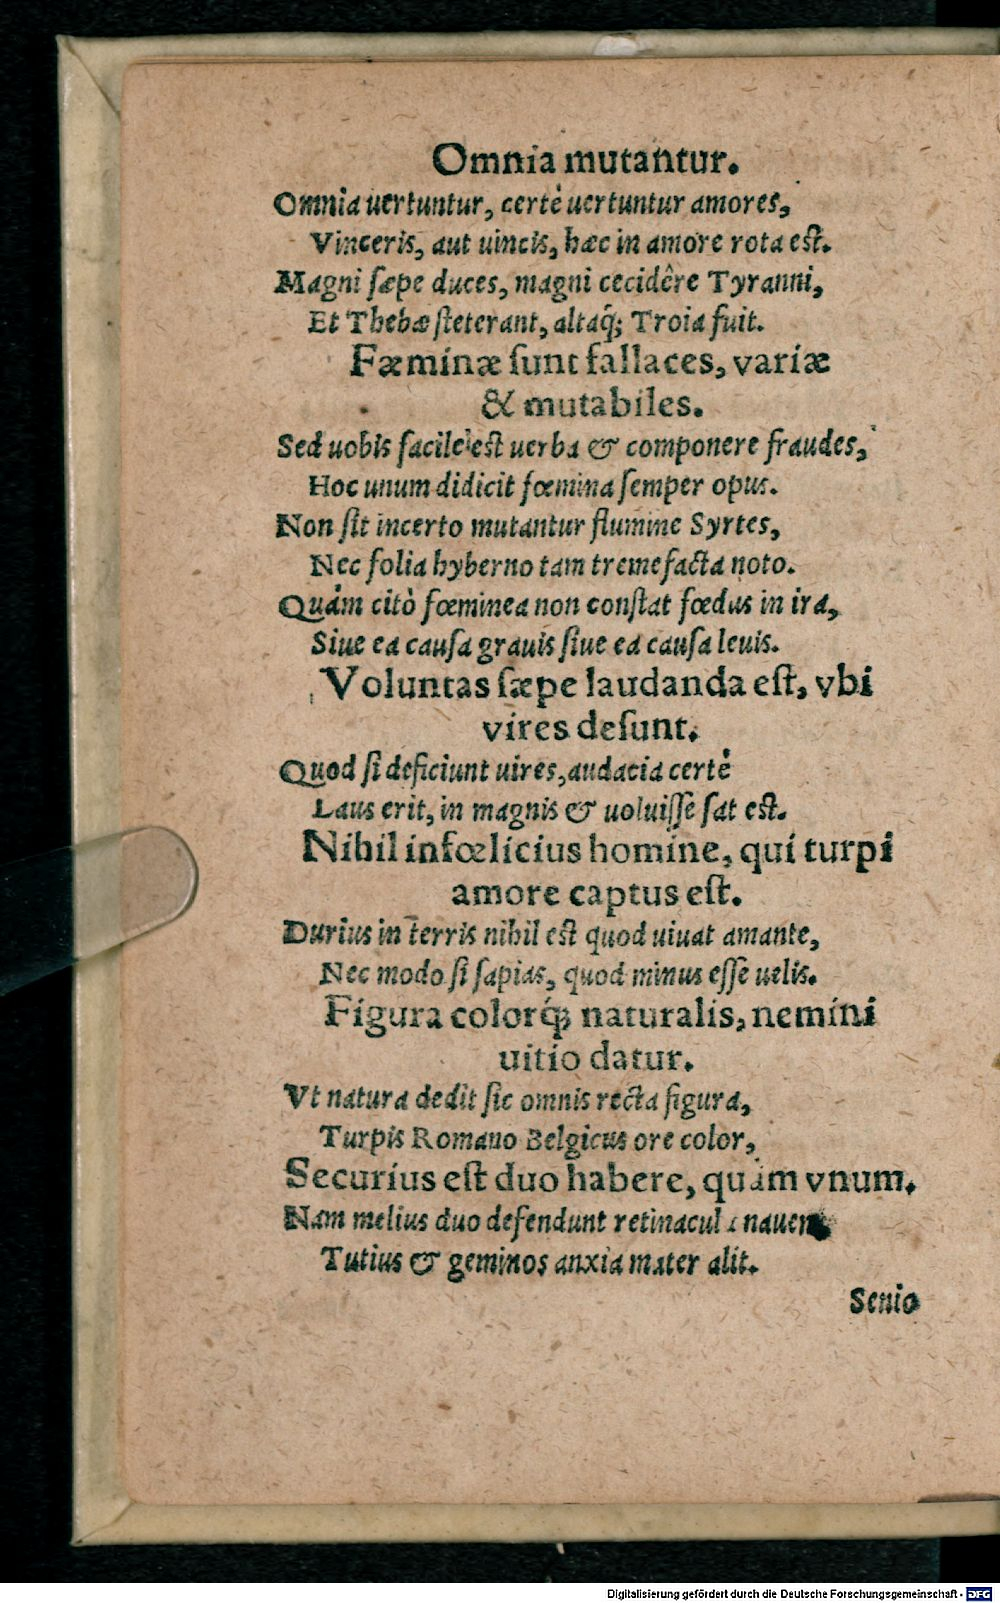 Omnia mutantur.
Omnia uertuntur, certè uertuntur amores,
Vinceris, aut uincis, hæc in amore rota est.
Magni sæpe duces, magni cecidêre Tyranni,
Et Thebæ steterant, altaq́; Troia fuit.
Fæminæ sunt fallaces, variæ
& mutabiles.
Sed uobis facile est uerba & componere fraudes,
Hoc unum didicit fœmina semper opus.
Non sit incerto mutantur flumine Syrtes,
Nec folia hyberno tam tremefacta noto.
Quàm citò fœminea non constat fœdus in ira,
Siue ea causa grauis siue ea causa leuis.
Voluntas sæpe laudanda est, vbi
vires desunt.
Quod si deficiunt uires, audacia certè
Laus erit, in magnis & uoluisse sat est.
Nihil infœlicius homine, qui turpi
amore captus est.
Durius in terris nihil est quod uiuat amante,
Nec modo si sapias, quod minus esse uelis.
Figura colorq́; naturalis, nemini
uitio datur.
Vt natura dedit sic omnis recta figura,
Turpis Romano Belgicus ore color,
Securius est duo habere, quàm vnum.
Nam melius duo defendunt retinacula nauem
Tutius & geminos anxia mater alit.
Senio
Digitalisierung gefördert durch die Deutsche Forschungsgemeinschaft - DFG